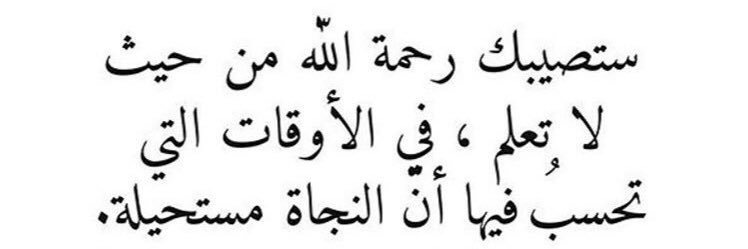 ستصيبك رحمة الله من حيث
لا تعلم ، في الأوقات التي
تحسبُ فيها أنّ النجاة مستحيلة.